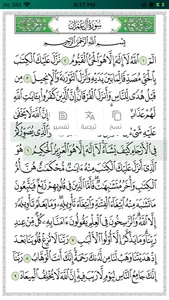 No SIM
سُورَةُ آلِ عِمْرَانَ
بِسْمِ اللَّهِ الرَّحْمَٰنِ الرَّحِيمِ
الٓمٓ ١ اللَّهُ لَا إِلَٰهَ إِلَّا هُوَ الْحَيُّ الْقَيُّومُ ٢ نَزَّلَ عَلَيْكَ الْكِتَٰبَ
بِالْحَقِّ مُصَدِّقًا لِّمَا بَيْنَ يَدَيْهِ وَأَنزَلَ التَّوْرَىٰةَ وَالْإِنجِيلَ ٣
مِن قَبْلُ هُدًى لِّلنَّاسِ وَأَنزَلَ الْفُرْقَانَ إِنَّ الَّذِينَ كَفَرُوا بِـَٔايَٰتِ اللَّهِ
لَهُمْ إِنَّ اللَّهَ لَا يَخْفَىٰ
تفسير ترجمة نسخ
عَلَيْهِ الَّذِي يُصَوِّرُكُمْ
فِي الْأَرْحَامِ كَيْفَ يَشَآءُ لَا إِلَٰهَ إِلَّا هُوَ الْعَزِيزُ الْحَكِيمُ ٦
هُوَ الَّذِي أَنزَلَ عَلَيْكَ الْكِتَٰبَ مِنْهُ ءَايَٰتٌ مُّحْكَمَٰتٌ هُنَّ أُمُّ
الْكِتَٰبِ وَأُخَرُ مُتَشَٰبِهَٰتٌ فَأَمَّا الَّذِينَ فِي قُلُوبِهِمْ زَيْغٌ فَيَتَّبِعُونَ
مَا تَشَٰبَهَ مِنْهُ ابْتِغَآءَ الْفِتْنَةِ وَابْتِغَآءَ تَأْوِيلِهِ وَمَا يَعْلَمُ تَأْوِيلَهُ
إِلَّا اللَّهُ وَالرَّٰسِخُونَ فِي الْعِلْمِ يَقُولُونَ ءَامَنَّا بِهِ كُلٌّ مِّنْ عِندِ
رَبِّنَا وَمَا يَذَّكَّرُ إِلَّا أُولُوا الْأَلْبَٰبِ ٧ رَبَّنَا لَا تُزِغْ قُلُوبَنَا بَعْدَ
إِذْ هَدَيْتَنَا وَهَبْ لَنَا مِن لَّدُنكَ رَحْمَةً إِنَّكَ أَنتَ الْوَهَّابُ ٨ رَبَّنَا
إِنَّكَ جَامِعُ النَّاسِ لِيَوْمٍ لَّا رَيْبَ فِيهِ إِنَّ اللَّهَ لَا يُخْلِفُ الْمِيعَادَ ٩